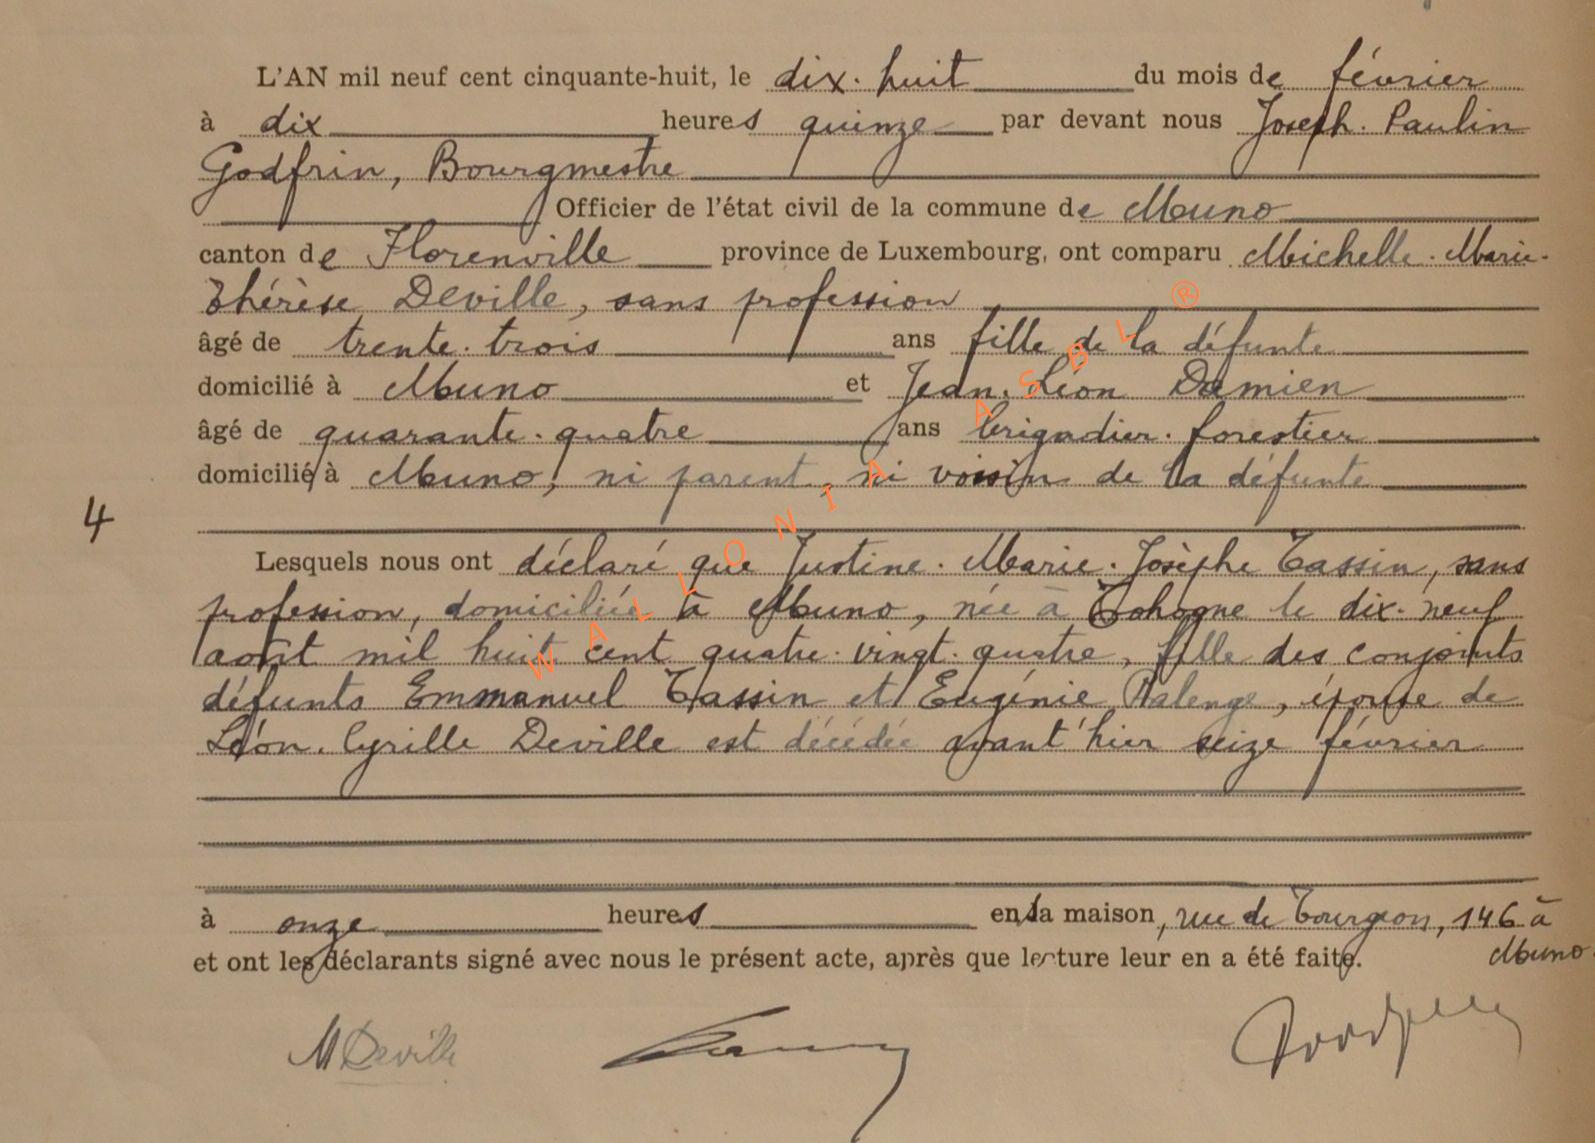 L'AN mil neuf cent cinquante-huit, le dix-huit du mois de février
à dix heures quinze par devant nous Joseph-Paulin
Godfrin, Bourgmestre
Officier de l'état civil de la commune de Muno
canton de Florenville province de Luxembourg, ont comparu Michelle-Marie-
Thérèse Deville, sans profession
âgé de trente-trois ans fille de la défunte
domicilié à Muno et Jean-Léon Damien
âgé de quarante-quatre ans brigadier-forestier
domicilié à Muno, ni parent, ni voisin de la défunte
4
Lesquels nous ont déclaré que Justine-Marie-Josèphe Tassin, sans
profession, domiciliée à Muno, née à Tohogne le dix-neuf
août mil huit cent quatre-vingt-quatre, fille des conjoints
défunts Emmanuel Tassin et Eugénie Halenge, épouse de
Léon-Cyrille Deville est décédée avant-hier seize février
à onze heures en sa maison, rue de Tourgeon, 146 à
Muno
et ont les déclarants signé avec nous le présent acte, après que lecture leur en a été faite.
M Deville
WALLONIA ASBL ®